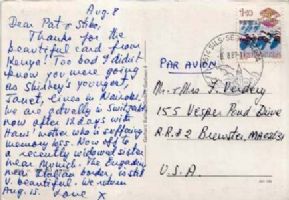 Aug. 8
Dear Pat & Stibs.
Thanks for the
beautiful card from
Kenya! Too bad I didn't
know you were going
as Shirley's youngest,
Janet, lives in Nairobi.
We are actually in Switzerld
now after 12 days with
Hans' mother who is suffering
memory loss. Now off to
a recently widowed sister
near Munich. The Engadin
near Italian border, is still
v. beautiful. We return
Aug. 15. Love X
PAR AVION
Mr. & Mrs F. Verdery
155 Vesper Pond Drive
R.R.#2 Brewster, MA 02631
U.S.A.